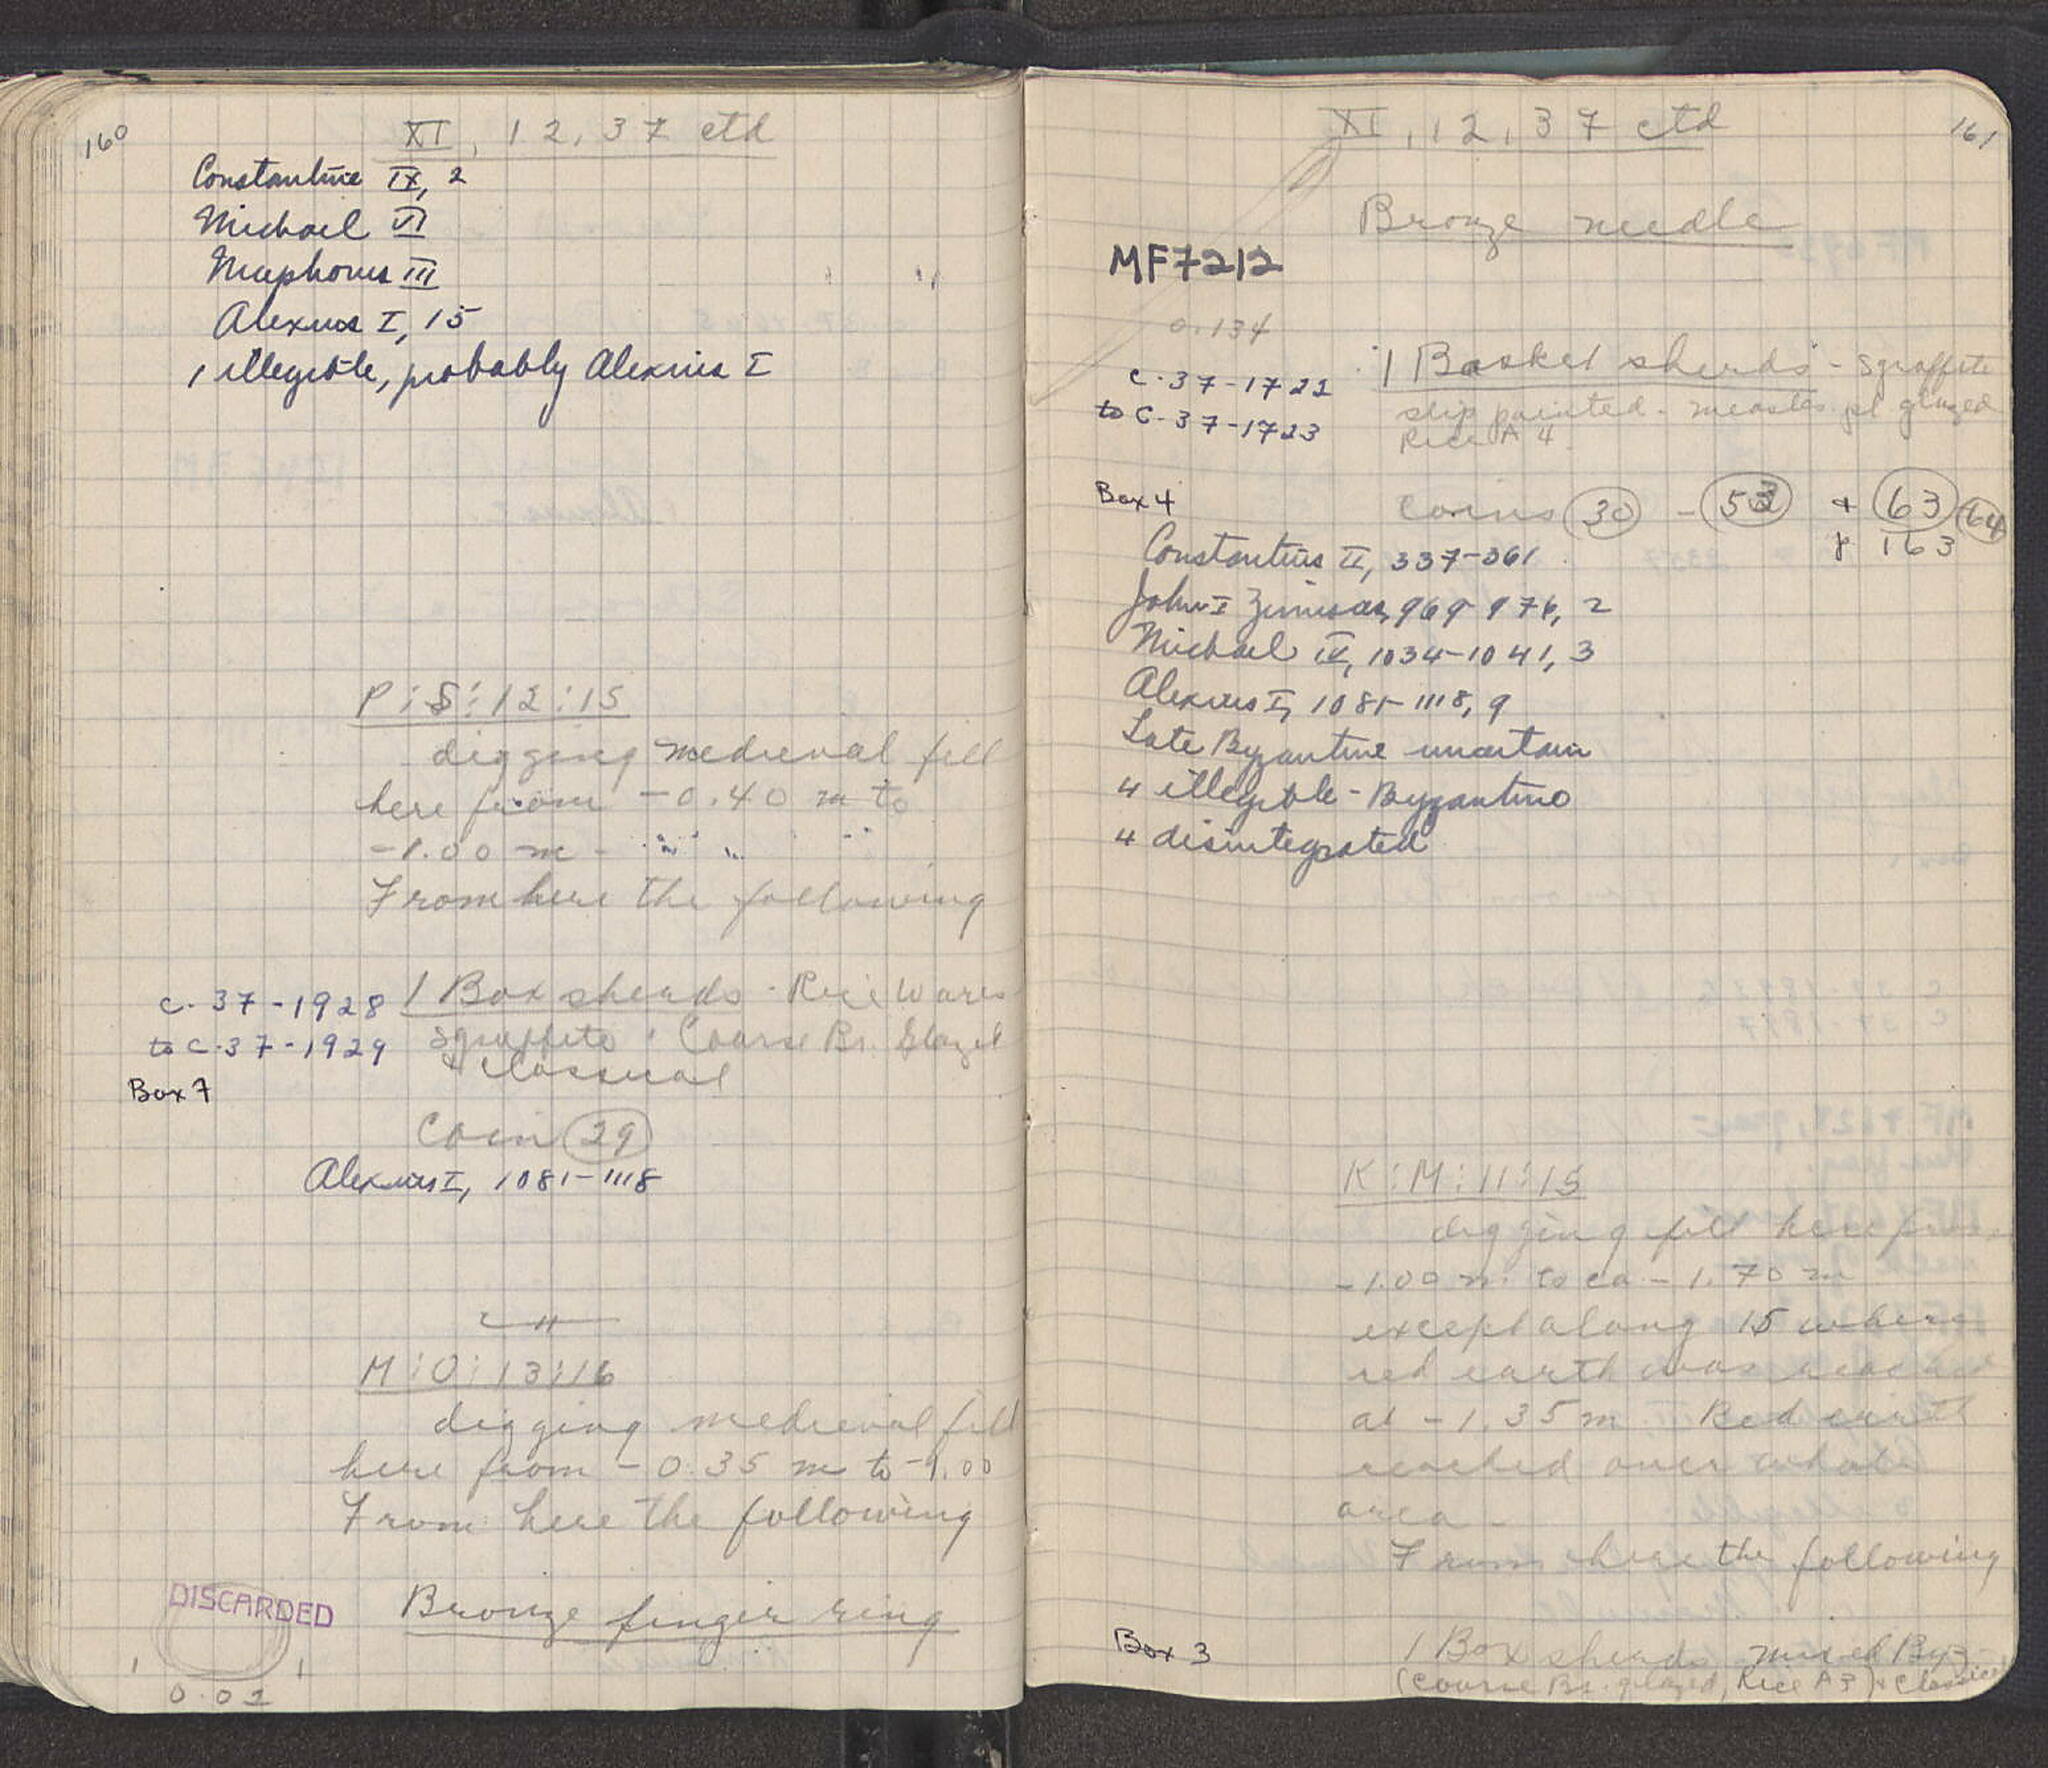 160
XI, 12, 37 ctd
Constantine IX, 2
Michael VI
Nicephorus III
Alexius I, 15
1 illegible, probably Alexius I
P:S:12:15
digging medieval fill
here from -0.40 m to
-1.00 m -
From here the following
C-37-1928
to C-37-1929
Box 7
1 Box sherds - Rice Wares
sgraffito : Coarse Br. Glazed
& Classical
Coin 29
Alexius I, 1081-1118
M:O:13:16
digging medieval fill
here from -0.35 m to -1.00
From here the following
DISCARDED
Bronze finger ring
0.02
161
XI, 12, 37 ctd
Bronze needle
MF7212
0.134
C-37-1722
to C-37-1723
1 Basket sherds - Sgraffite
slip painted - measles pl glazed
Rice A 4
Box 4
Coins 30 - 53 + 63 64
& 163
Constantius II, 337-361
John I Zimisces, 969-976, 2
Michael IV, 1034-1041, 3
Alexius I, 1081-1118, 9
Late Byzantine uncertain
4 illegible - Byzantine
4 disintegrated
K:M:11:15
digging fill here from
-1.00 m. to ca -1.70 m
except along 15 where
red earth was reached
at -1.35 m. Red earth
reached over whole
area -
From here the following
Box 3
1 Box sherds mixed Byz-
(Coarse Br. glazed, Rice A3) & Classical